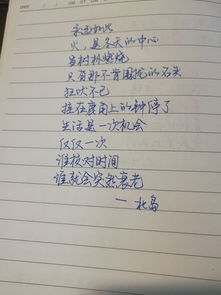 永远如此
火，是冬天的中心
当树林燃烧
只有那不肯围拢的石头
狂吠不已
挂在鹿角上的钟停了
生活是一次机会
仅仅一次
谁校对时间
谁就会突然衰老
— 北岛